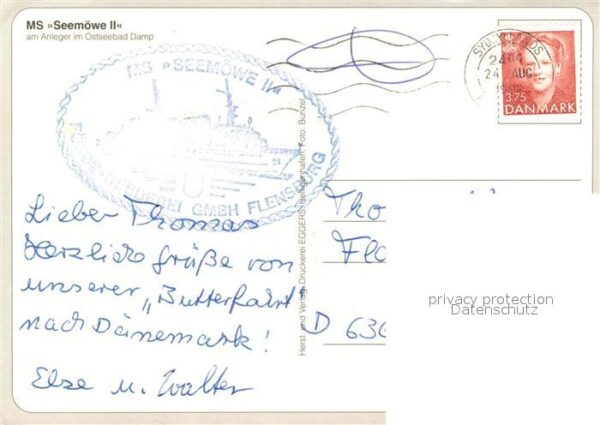 MS »Seemöwe II«
am Anlieger im Ostseebad Damp
MS »SEEMÖWE II«
GMBH FLENSBURG
24 AUG
3.75
DANMARK
Lieber Thomas
Herzliche Grüße von
unserer „Butterfahrt"
nach Dänemark!
Else u. Walter
Herst. und Verlag Druckerei EGGERS Heiligenhafen, Foto: Bunzel
Tho
Flo
D 636
privacy protection
Datenschutz